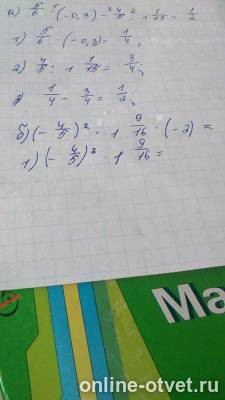 а) 5/6 · (-0,3) - 4/5 : 1 1/15 = 1/2
1) 5/6 · (-0,3) = 1/4;
2) 4/5 : 1 1/15 = 3/4;
3) 1/4 - 3/4 = 1/2,
б) (- 4/5)² · 1 9/16 · (-2) =
1) (- 4/5)² · 1 9/16 =
Ма
online-otvet.ru